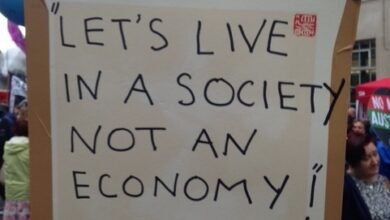 "LET'S LIVE
IN A SOCIETY
NOT AN
ECONOMY!"
NO
AUS